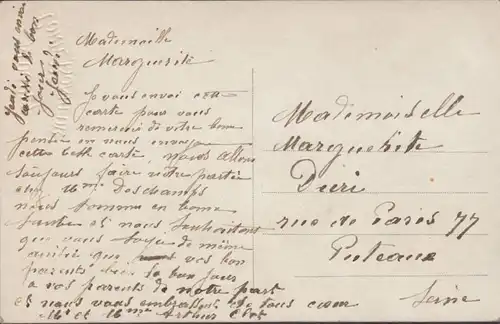 Mademoiselle
Marguerite
Je vous envoi cett
carte pour vous
remercier de votre bonne
pensée en nous envoyan
cette bell carte, nous allons
toujours faire notre partie
chez Mme Deschamps
nous somme en bonne
santée et nous souhaitont
que vous soyez de même
ainsi que vos bon
parents bien le bon jour
a vos parents de notre part
et nous vous embrassons de tous cœur
Mr et Mme Arthur
Mademoiselle
Marguerite
Diéri
rue de Paris 77
Puteaux
Seine